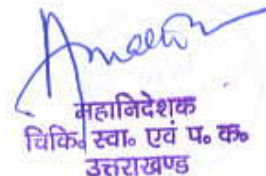 महानिदेशक
चिकि॰ स्वा॰ एवं प॰ क॰
उत्तराखण्ड